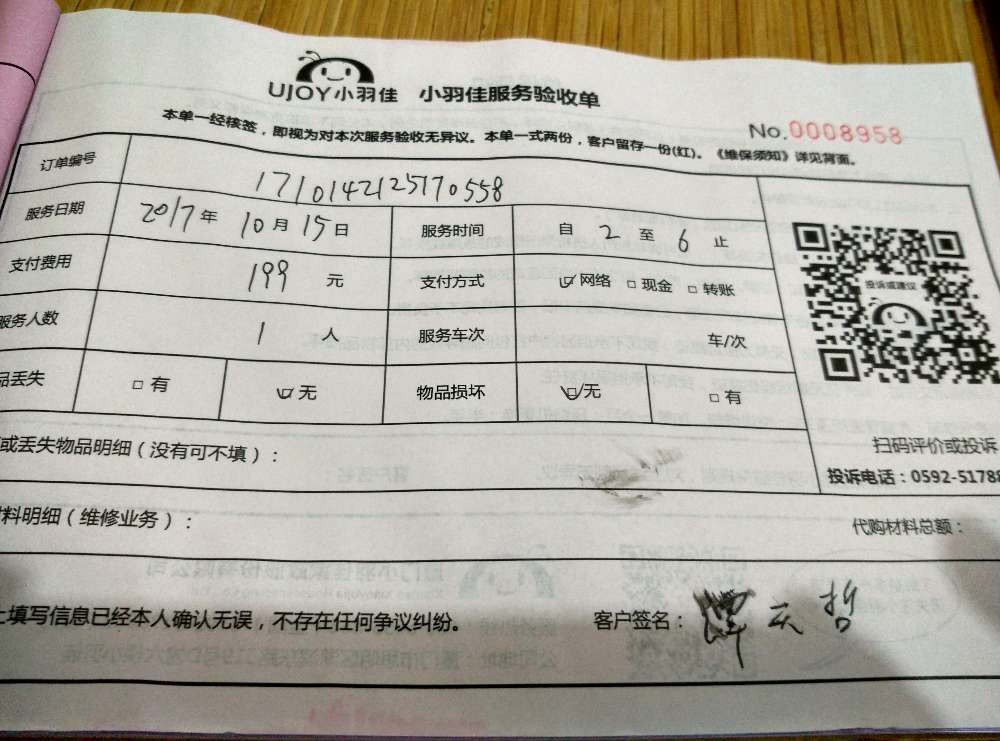 UJOY小羽佳 小羽佳服务验收单
No.0008958
本单一经核签，即视为对本次服务验收无异议。本单一式两份，客户留存一份(红)。《维保须知》详见背面。
订单编号 1710142125170558
服务日期 2017年10月15日 服务时间 自2至6止
支付费用 199元 支付方式 ☑网络 □现金 □转账
服务人数 1人 服务车次 车/次
品丢失 □有 ☑无 物品损坏 ☑无 □有
投诉或建议
扫码评价或投诉
投诉电话：0592-51788
或丢失物品明细（没有可不填）：
料明细（维修业务）： 代购材料总额：
上填写信息已经本人确认无误，不存在任何争议纠纷。 客户签名： 云哲